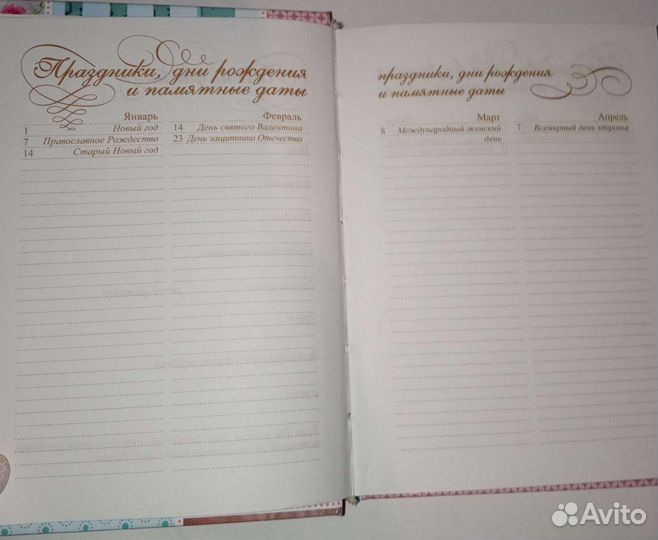 Праздники, дни рождения
и памятные даты
Январь
1 Новый год
7 Православное Рождество
14 Старый Новый год
Февраль
14 День святого Валентина
23 День защитника Отечества
праздники, дни рождения
и памятные даты
Март
8 Международный женский
день
Апрель
7 Всемирный день здоровья
Avito